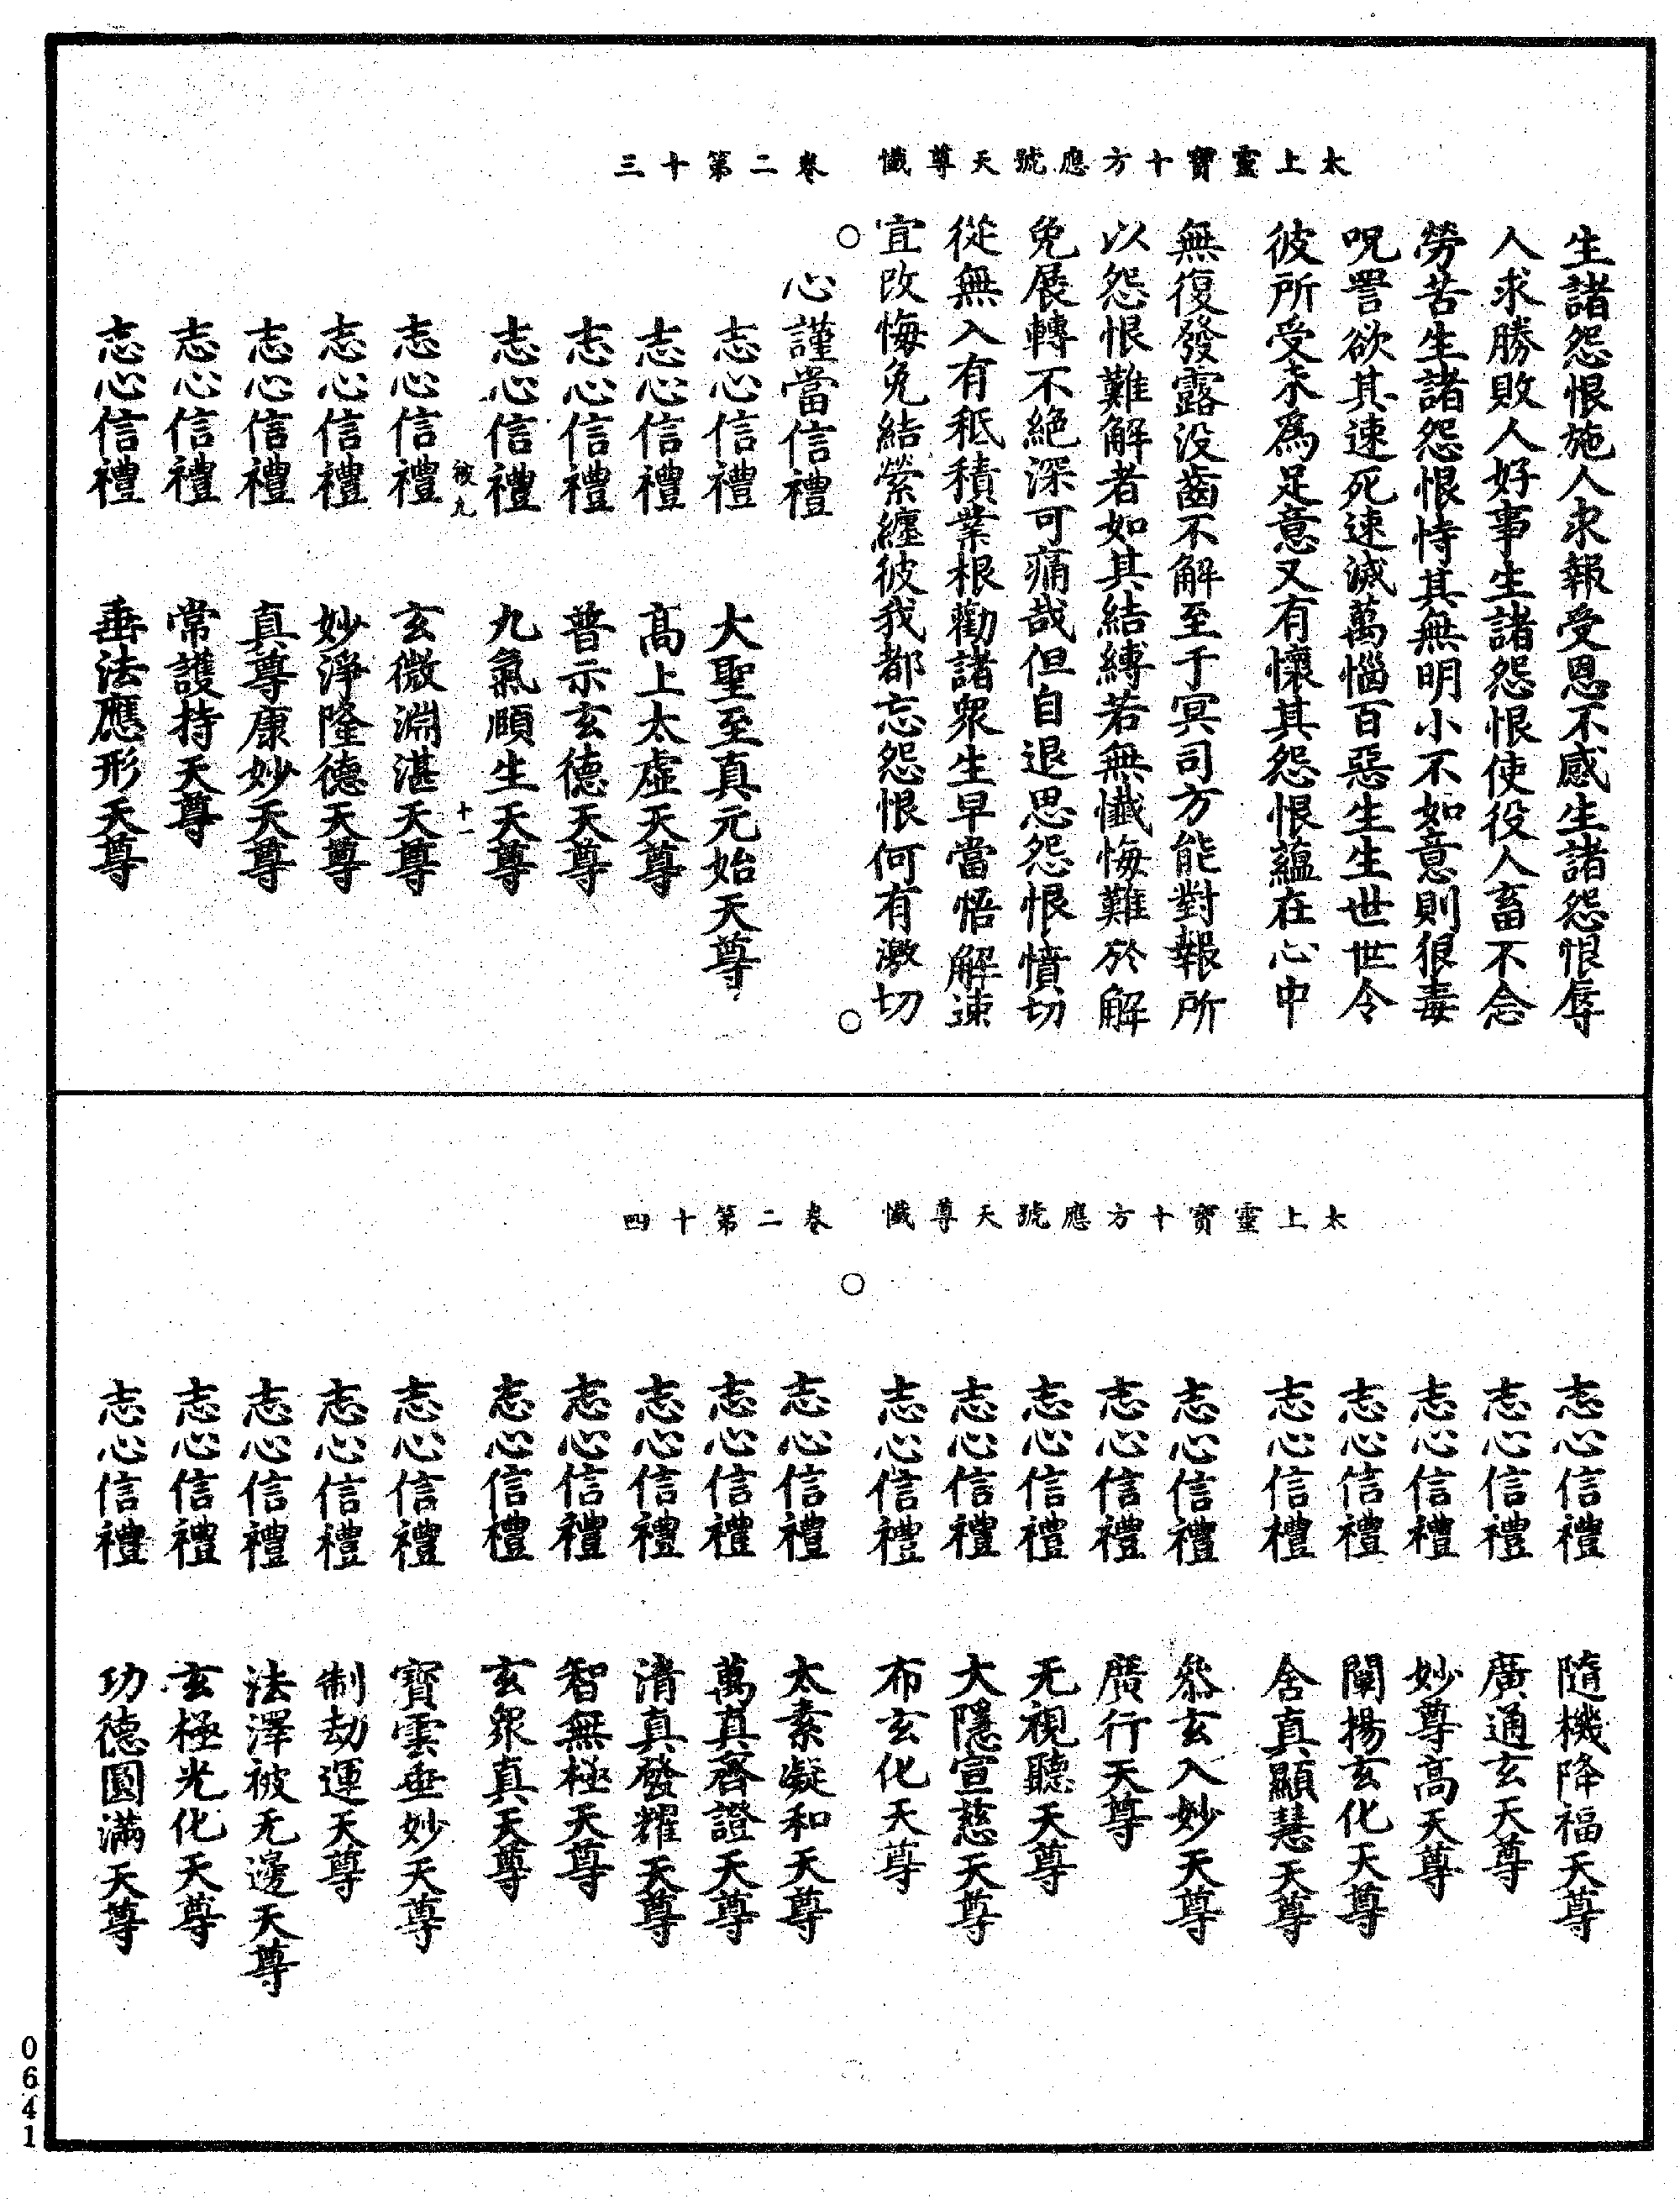 太上靈寶十方應號天尊懺　卷二第十三
生諸怨恨施人求報受恩不感生諸怨恨辱
人求勝敗人好事生諸怨恨使役人畜不念
勞苦生諸怨恨恃其無明小不如意則狠毒
呪詈欲其速死速滅萬惱百惡生生世世令
彼所受未爲足意又有懷其怨恨蘊在心中
無復發露没齒不解至于冥司方能對報所
以怨恨難解者如其結縛若無懺悔難於解
免展轉不絕深可痛哉但自退思怨恨憤切
從無入有秪積業根勸諸衆生早當悟解速
宜改悔免結縈纏彼我都忘怨恨何有激切
○　○
心謹當信禮
志心信禮　大聖至真元始天尊
志心信禮　高上太虛天尊
志心信禮　普示玄德天尊
志心信禮　九氣頤生天尊
被九　十一
志心信禮　玄微淵湛天尊
志心信禮　妙淨隆德天尊
志心信禮　真尊康妙天尊
志心信禮　常護持天尊
志心信禮　垂法應形天尊
太上靈寶十方應號天尊懺　卷二第十四
志心信禮　隨機降福天尊
志心信禮　廣通玄天尊
志心信禮　妙尊高天尊
志心信禮　闡揚玄化天尊
志心信禮　含真顯慧天尊
志心信禮　叅玄入妙天尊
志心信禮　廣行天尊
志心信禮　无視聽天尊
志心信禮　大隱宣慈天尊
志心信禮　布玄化天尊
○
志心信禮　太素凝和天尊
志心信禮　萬真齊證天尊
志心信禮　清真發耀天尊
志心信禮　智無極天尊
志心信禮　玄衆真天尊
志心信禮　寶雲垂妙天尊
志心信禮　制劫運天尊
志心信禮　法澤被无邊天尊
志心信禮　玄極光化天尊
志心信禮　功德圓滿天尊
0641